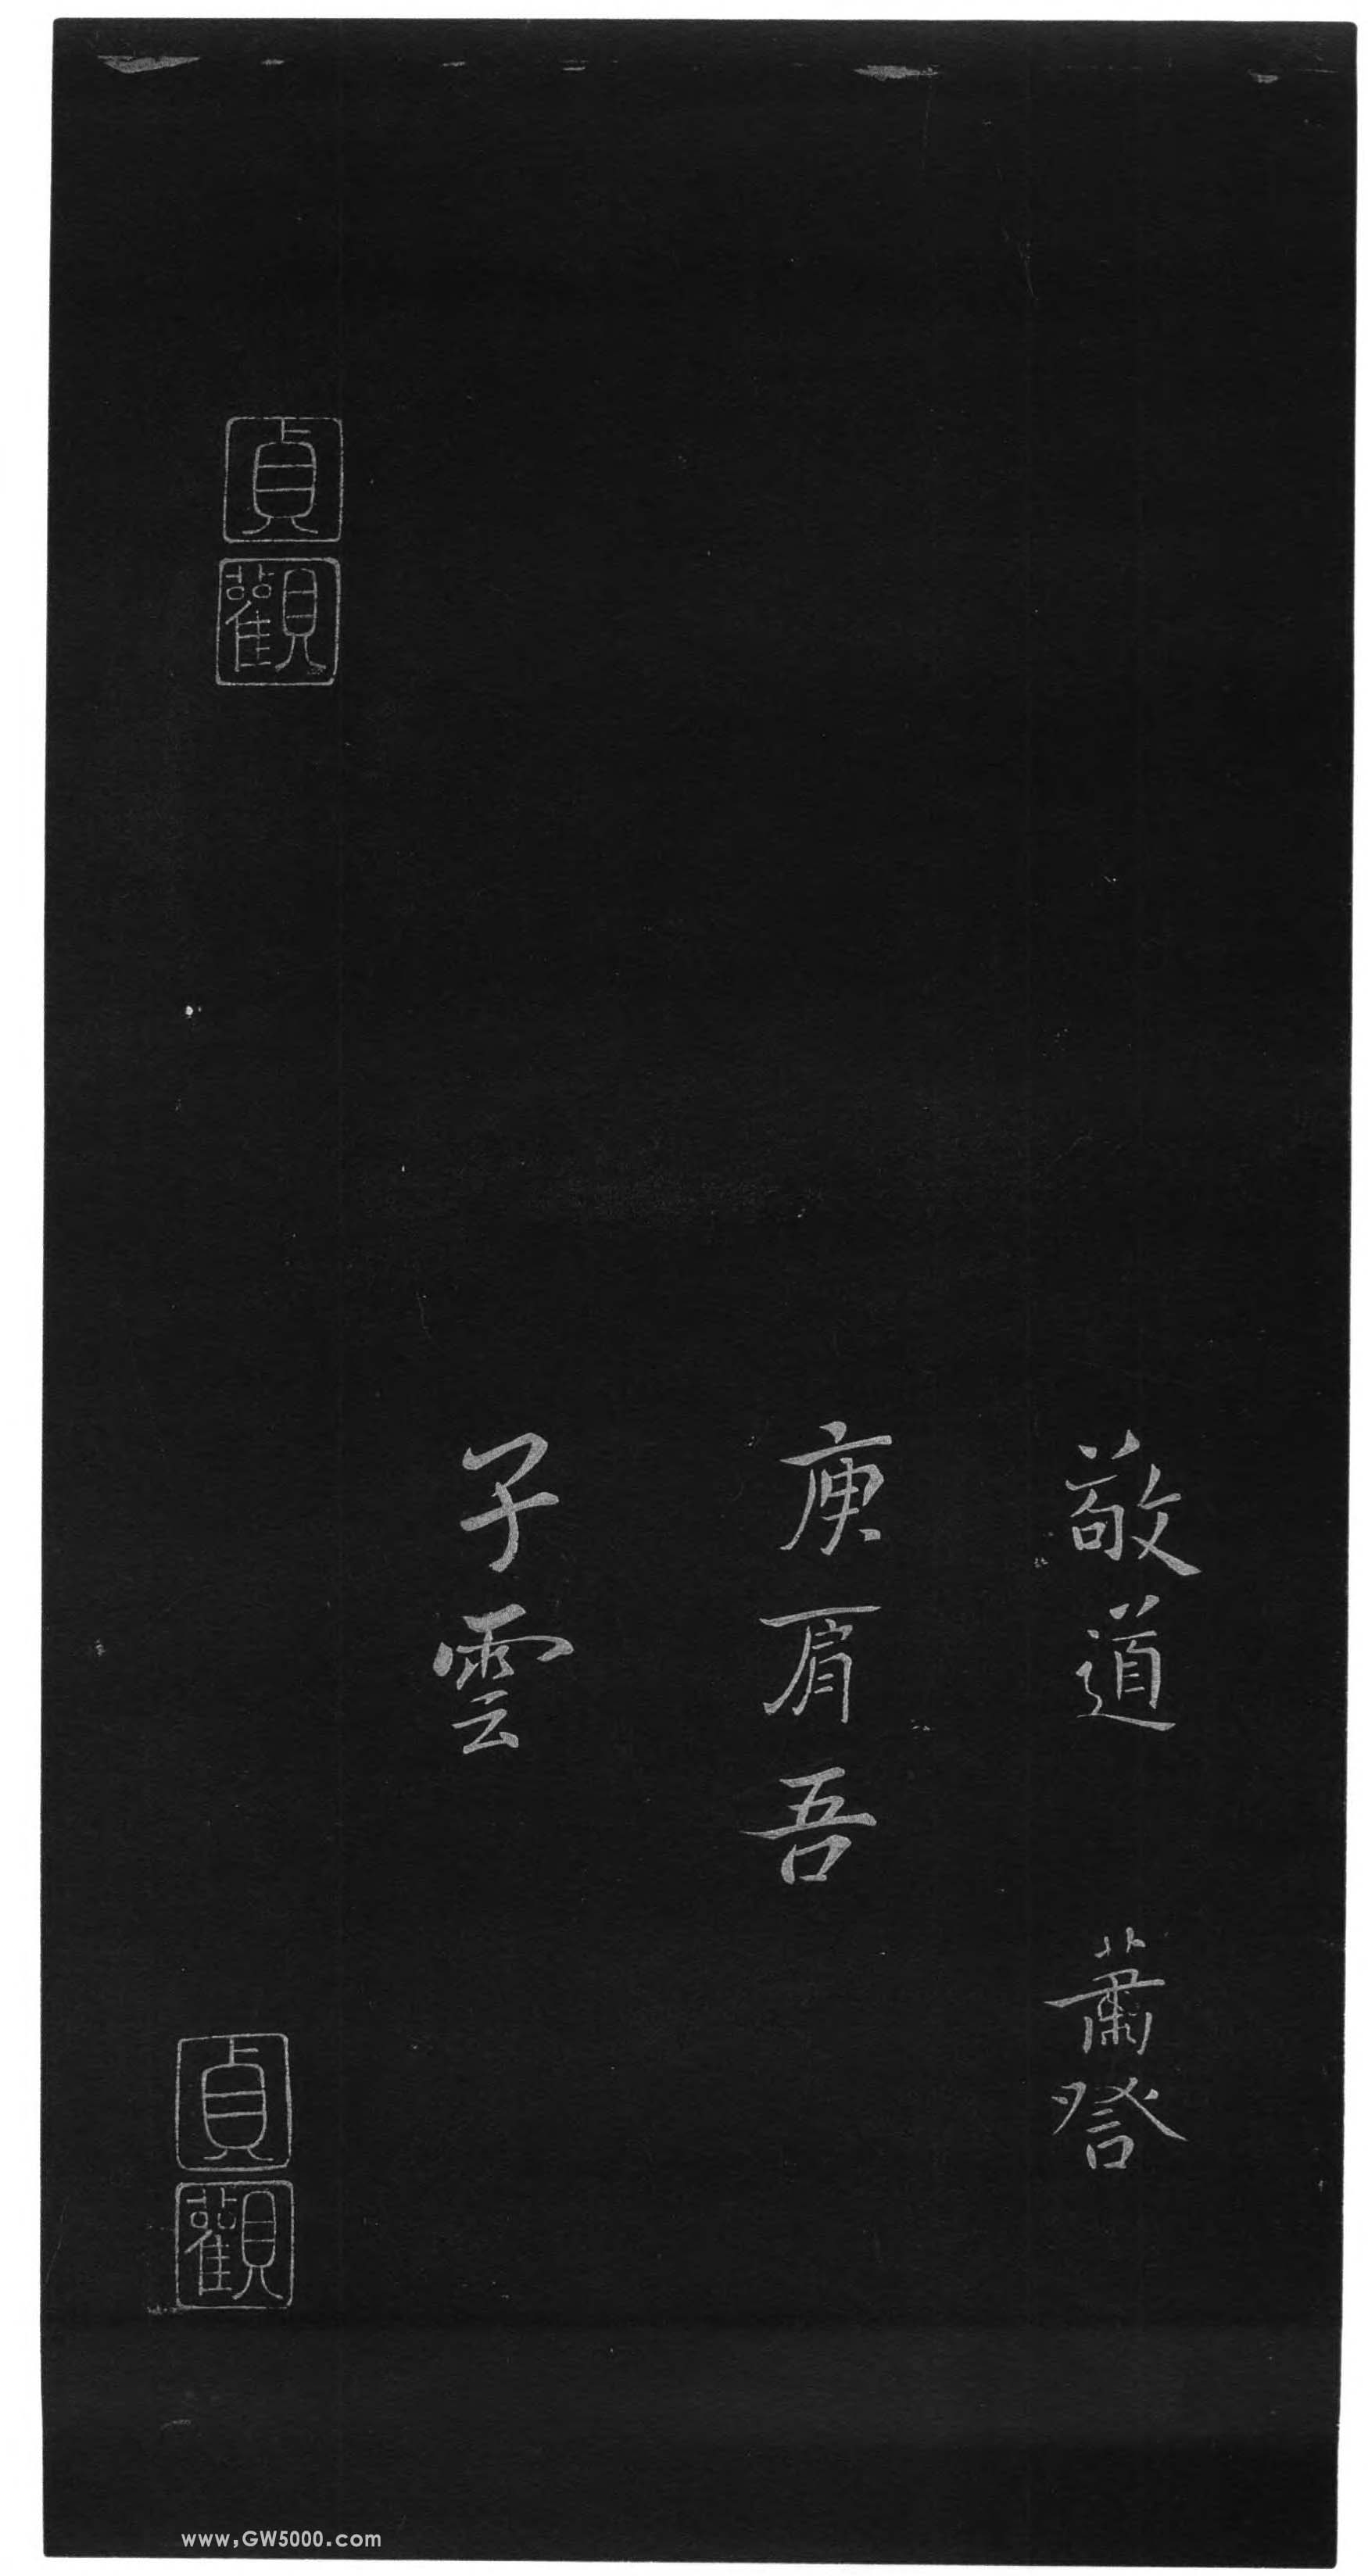 敬道 蕭詧
庾肩吾
子雲
貞觀
貞觀
www,GW5000.com